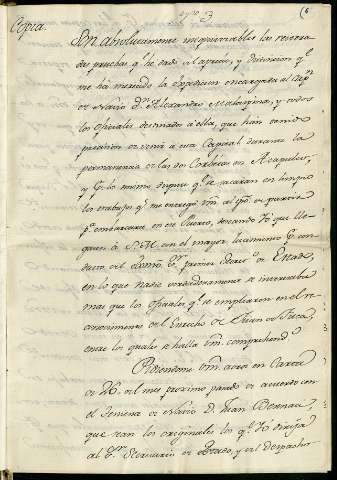 Nº 3
6
Copia.
Son absolutamente inequivocables las reitera
das pruebas qe. he dado del aprecio, y distincion qe.
me ha merecido la Expedicion encargada al Capn.
de Navio Dn. Alexandro Malaspina, y todos
los oficiales destinados à ella, que han tenido
precision de venir à esta Capital, durante la
permanencia de las dos Corbetas en Acapulco,
y pr. lo mismo dispuse qe. se sacaran en limpio
los trabajos qe. me entregó Vm. al tpo. de
pa. embarcarse en ese Puerto, deseando Yo que lle
gasen à S.M. con el mayor lucimiento pr. con
ducto del Exmo. Sor. primer Secreto. de Estado,
en lo que nadie verdaderamente se interesaba
mas que los oficiales qe. se emplearon en el re
conocimiento del Estrecho de Juan de Fuca,
entre los quales se halla Vm. comprehendido.
Pidiendome Vm. aora en Carta
de 26 del mes proximo pasado de acuerdo con
el Teniente de Navio D. Juan Vernaci,
que sean los originales los qe. Yo dirija
al Sor. Secretario de Estado, y del Despacho